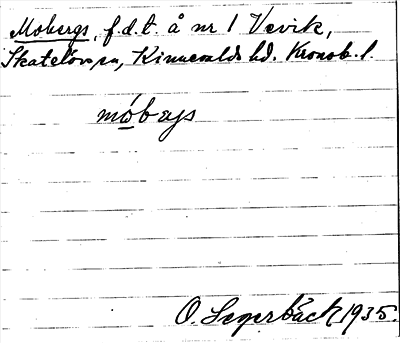 Mobergs, f.d.t. å nr 1 Vevik,
Skatelöv sn, Kinnevalds hd. Kronob. l.
móbærjs
O. Segerbäck 1935.